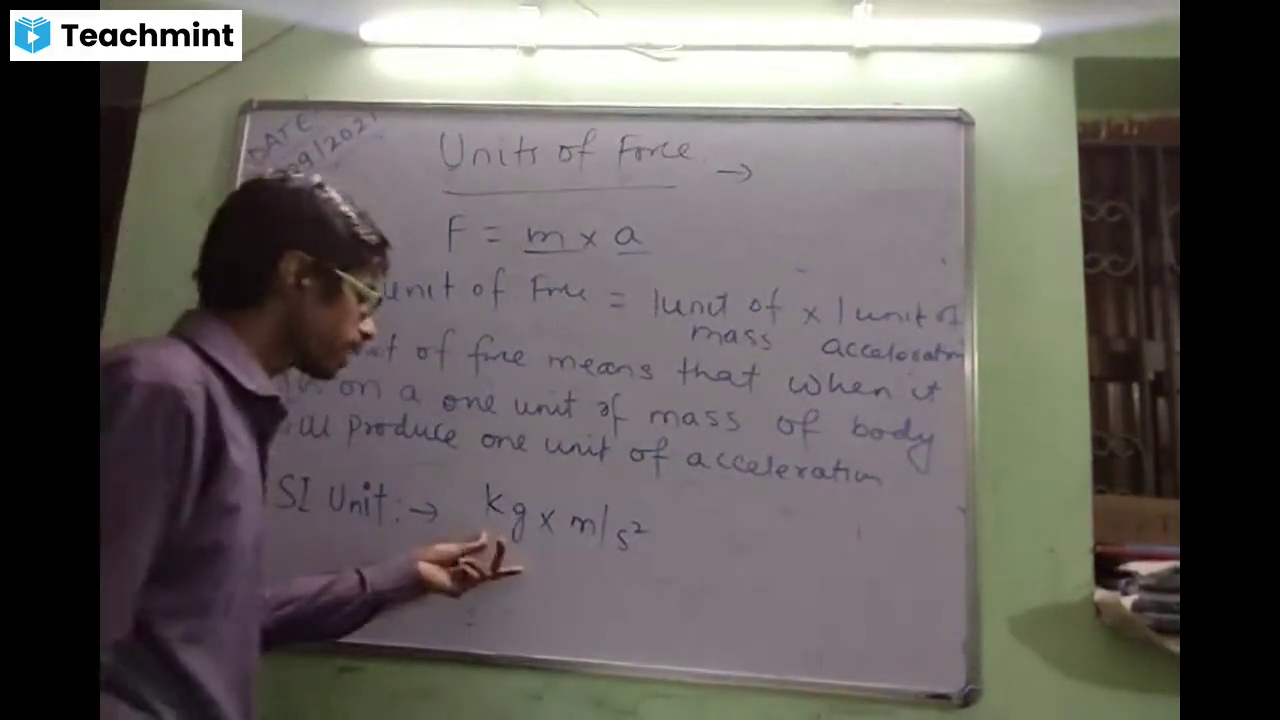 Teachmint
DATE
09/2021
Units of Force →
F = m x a
unit of Force = 1unit of x 1 unit of
mass acceleration
of force means that when it
on a one unit of mass of body
produce one unit of acceleration
SI Unit :→ kg x m/s²